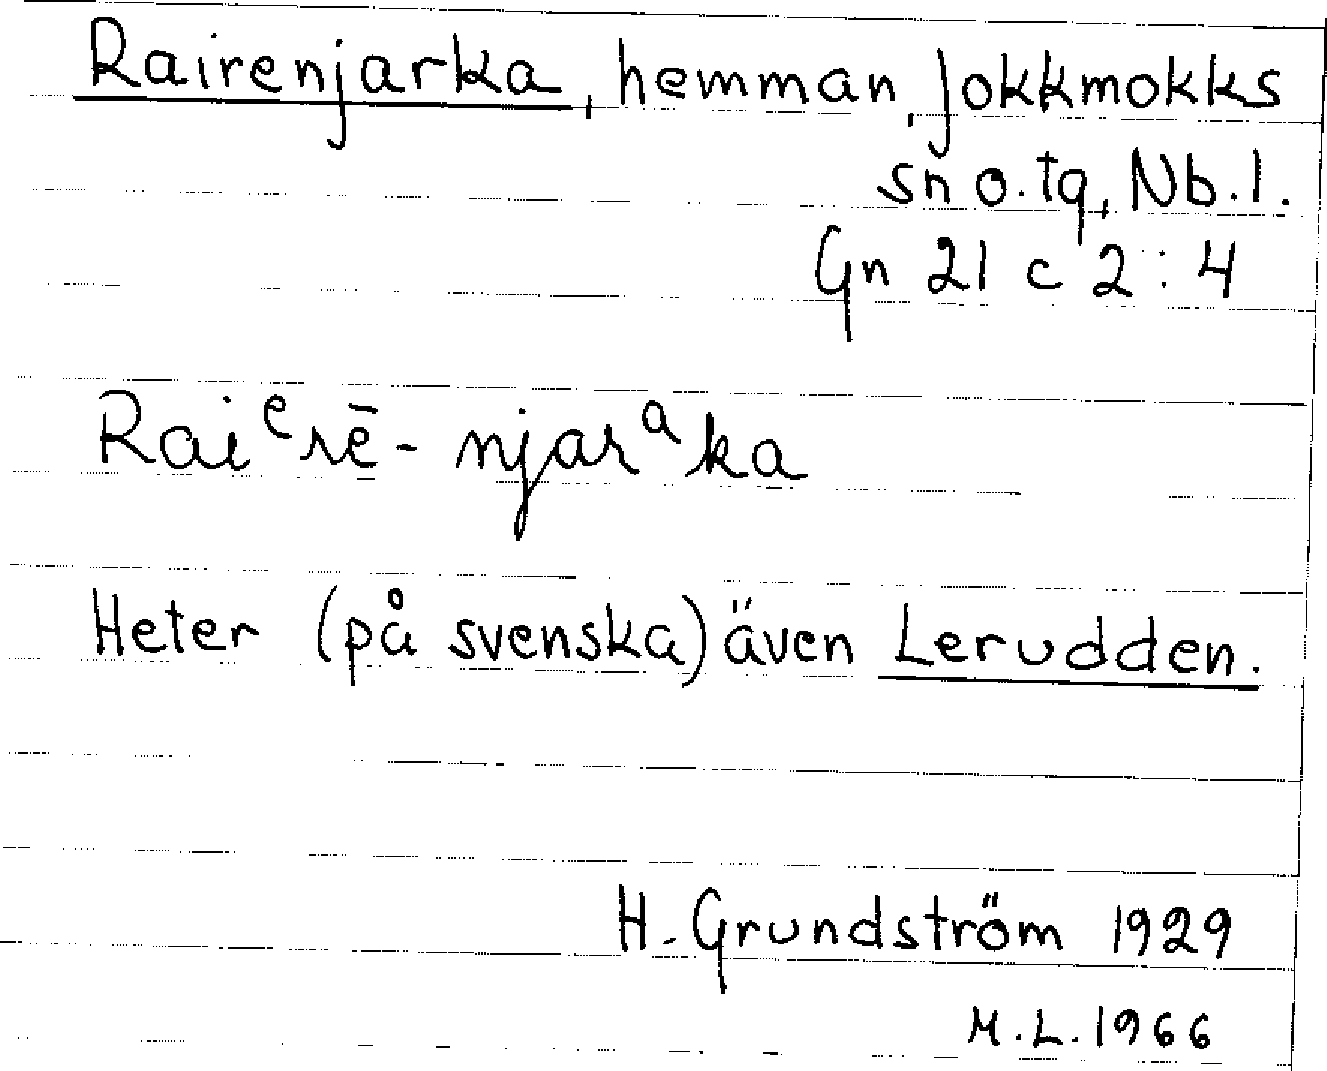 Rairenjarka, hemman, Jokkmokks
sn o. tg, Nb. l.
Gn 21 c 2:4
Raiᵉrē-njarᵃka
Heter (på svenska) även Lerudden.
H. Grundström 1929
M.L. 1966